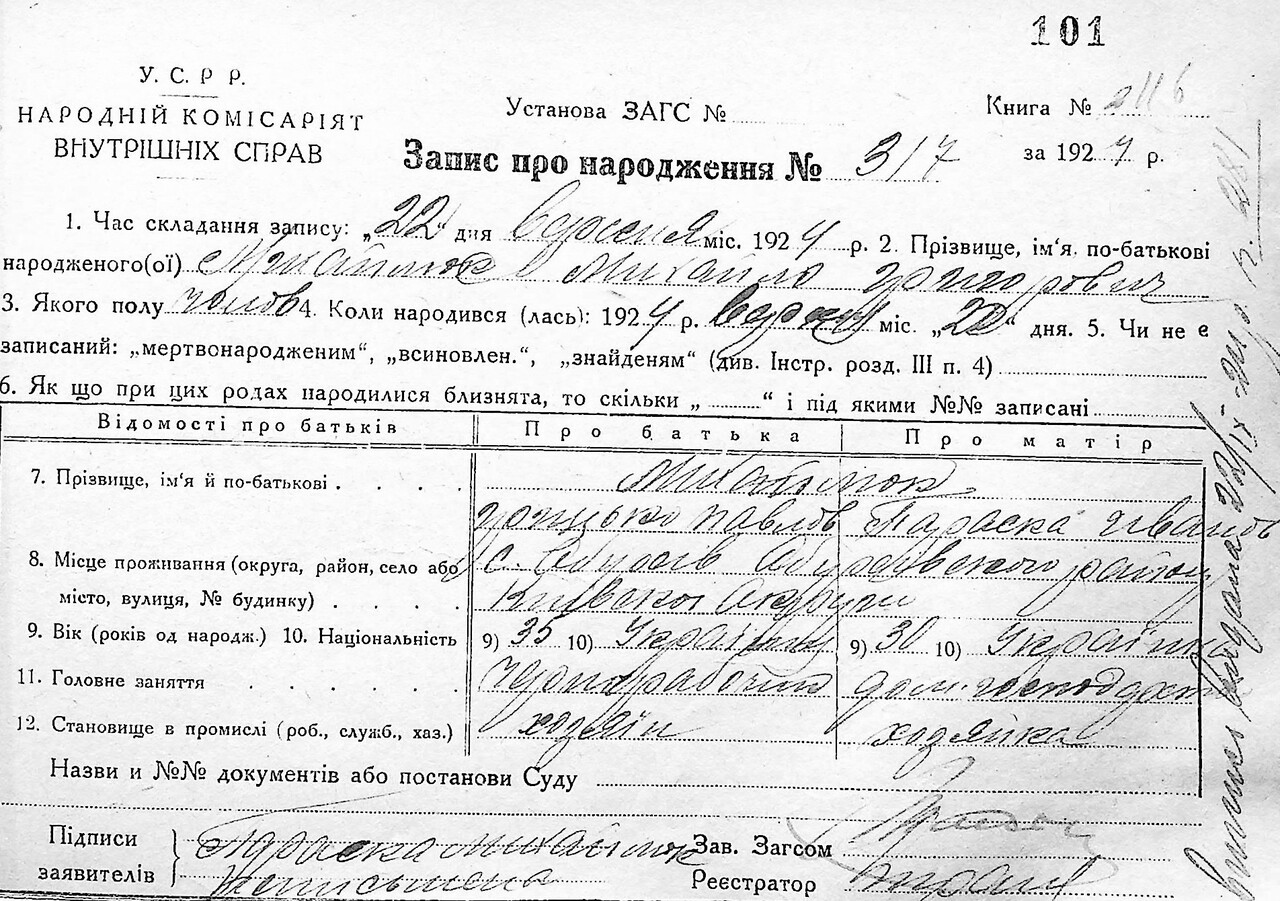 101
У. С. Р Р.
НАРОДНІЙ КОМІСАРІЯТ
ВНУТРІШНІХ СПРАВ
Установа ЗАГС №
Книга №
за 1924 р.
Запис про народження № 317
1. Час складання запису: „22“ дня вересня міс. 1924 р. 2. Прізвище, ім'я, по-батькові
народженого(ої) Михайло Григорович
3. Якого полу чолов 4. Коли народився (лась): 1924 р. міс. „22“ дня. 5. Чи не є
записаний: „мертвонародженим“, „всиновлен.“, „знайденям“ (див. Інстр. розд. III п. 4)
6. Як що при цих родах народилися близнята, то скільки „ “ і під якими №№ записані
Відомості про батьків Про батька Про матір
7. Прізвище, ім'я й по-батькові
Грицько Павлов Параска Іванов
8. Місце проживання (округа, район, село або с. Обухів Обухівського району
місто, вулиця, № будинку) Київської Округи
9. Вік (років од народж.) 10. Національність 9) 35 10) Українец 9) 30 10) Українка
11. Головне заняття Чорнорабочий дом. господарст
12. Становище в промислі (роб., служб., хаз.) хозяїн хозяйка
Назви и №№ документів або постанови Суду
Підписи Параска
заявителів неписьмена
Зав. Загсом
Реєстратор